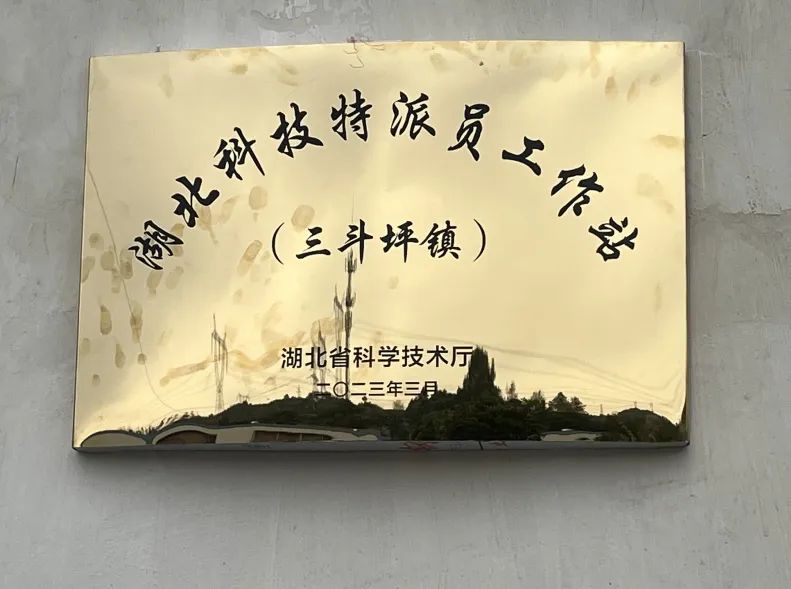 湖北科技特派员工作站
（三斗坪镇）
湖北省科学技术厅
二〇二三年三月